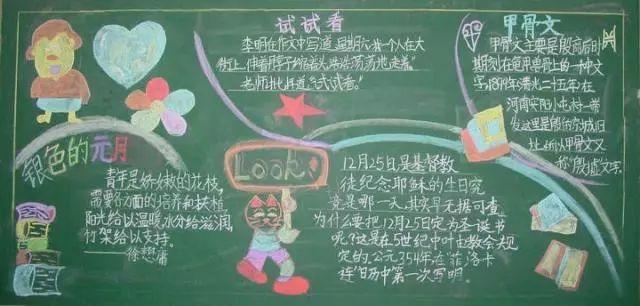 试试看
李明在作文中写道：星期六我一个人在大
街上，伸着脖子缩着头浩浩荡荡地走着。"
老师批道："试试看。"
甲骨文
甲骨文主要是殷商后时
期刻在龟甲兽骨上的一种文
字，1899年清光二十五年在
河南安阳小屯村一带
发这里是殷的京城旧
址所以甲骨文又
称"殷墟文字
银色的元月
青年是娇嫩的花枝，
需要各方面的培养和扶植
阳光给以温暖，水分给滋润，
竹架给以支持。
——徐懋庸
Look
12月25日是基督教
徒纪念耶稣的生日究
竟是哪一天，其实早无据可查。
为什么要把12月25日定为圣诞节
呢？这是在5世纪中叶由教会规
定的，公元354年在"菲洛卡
连"日历中第一次写明。